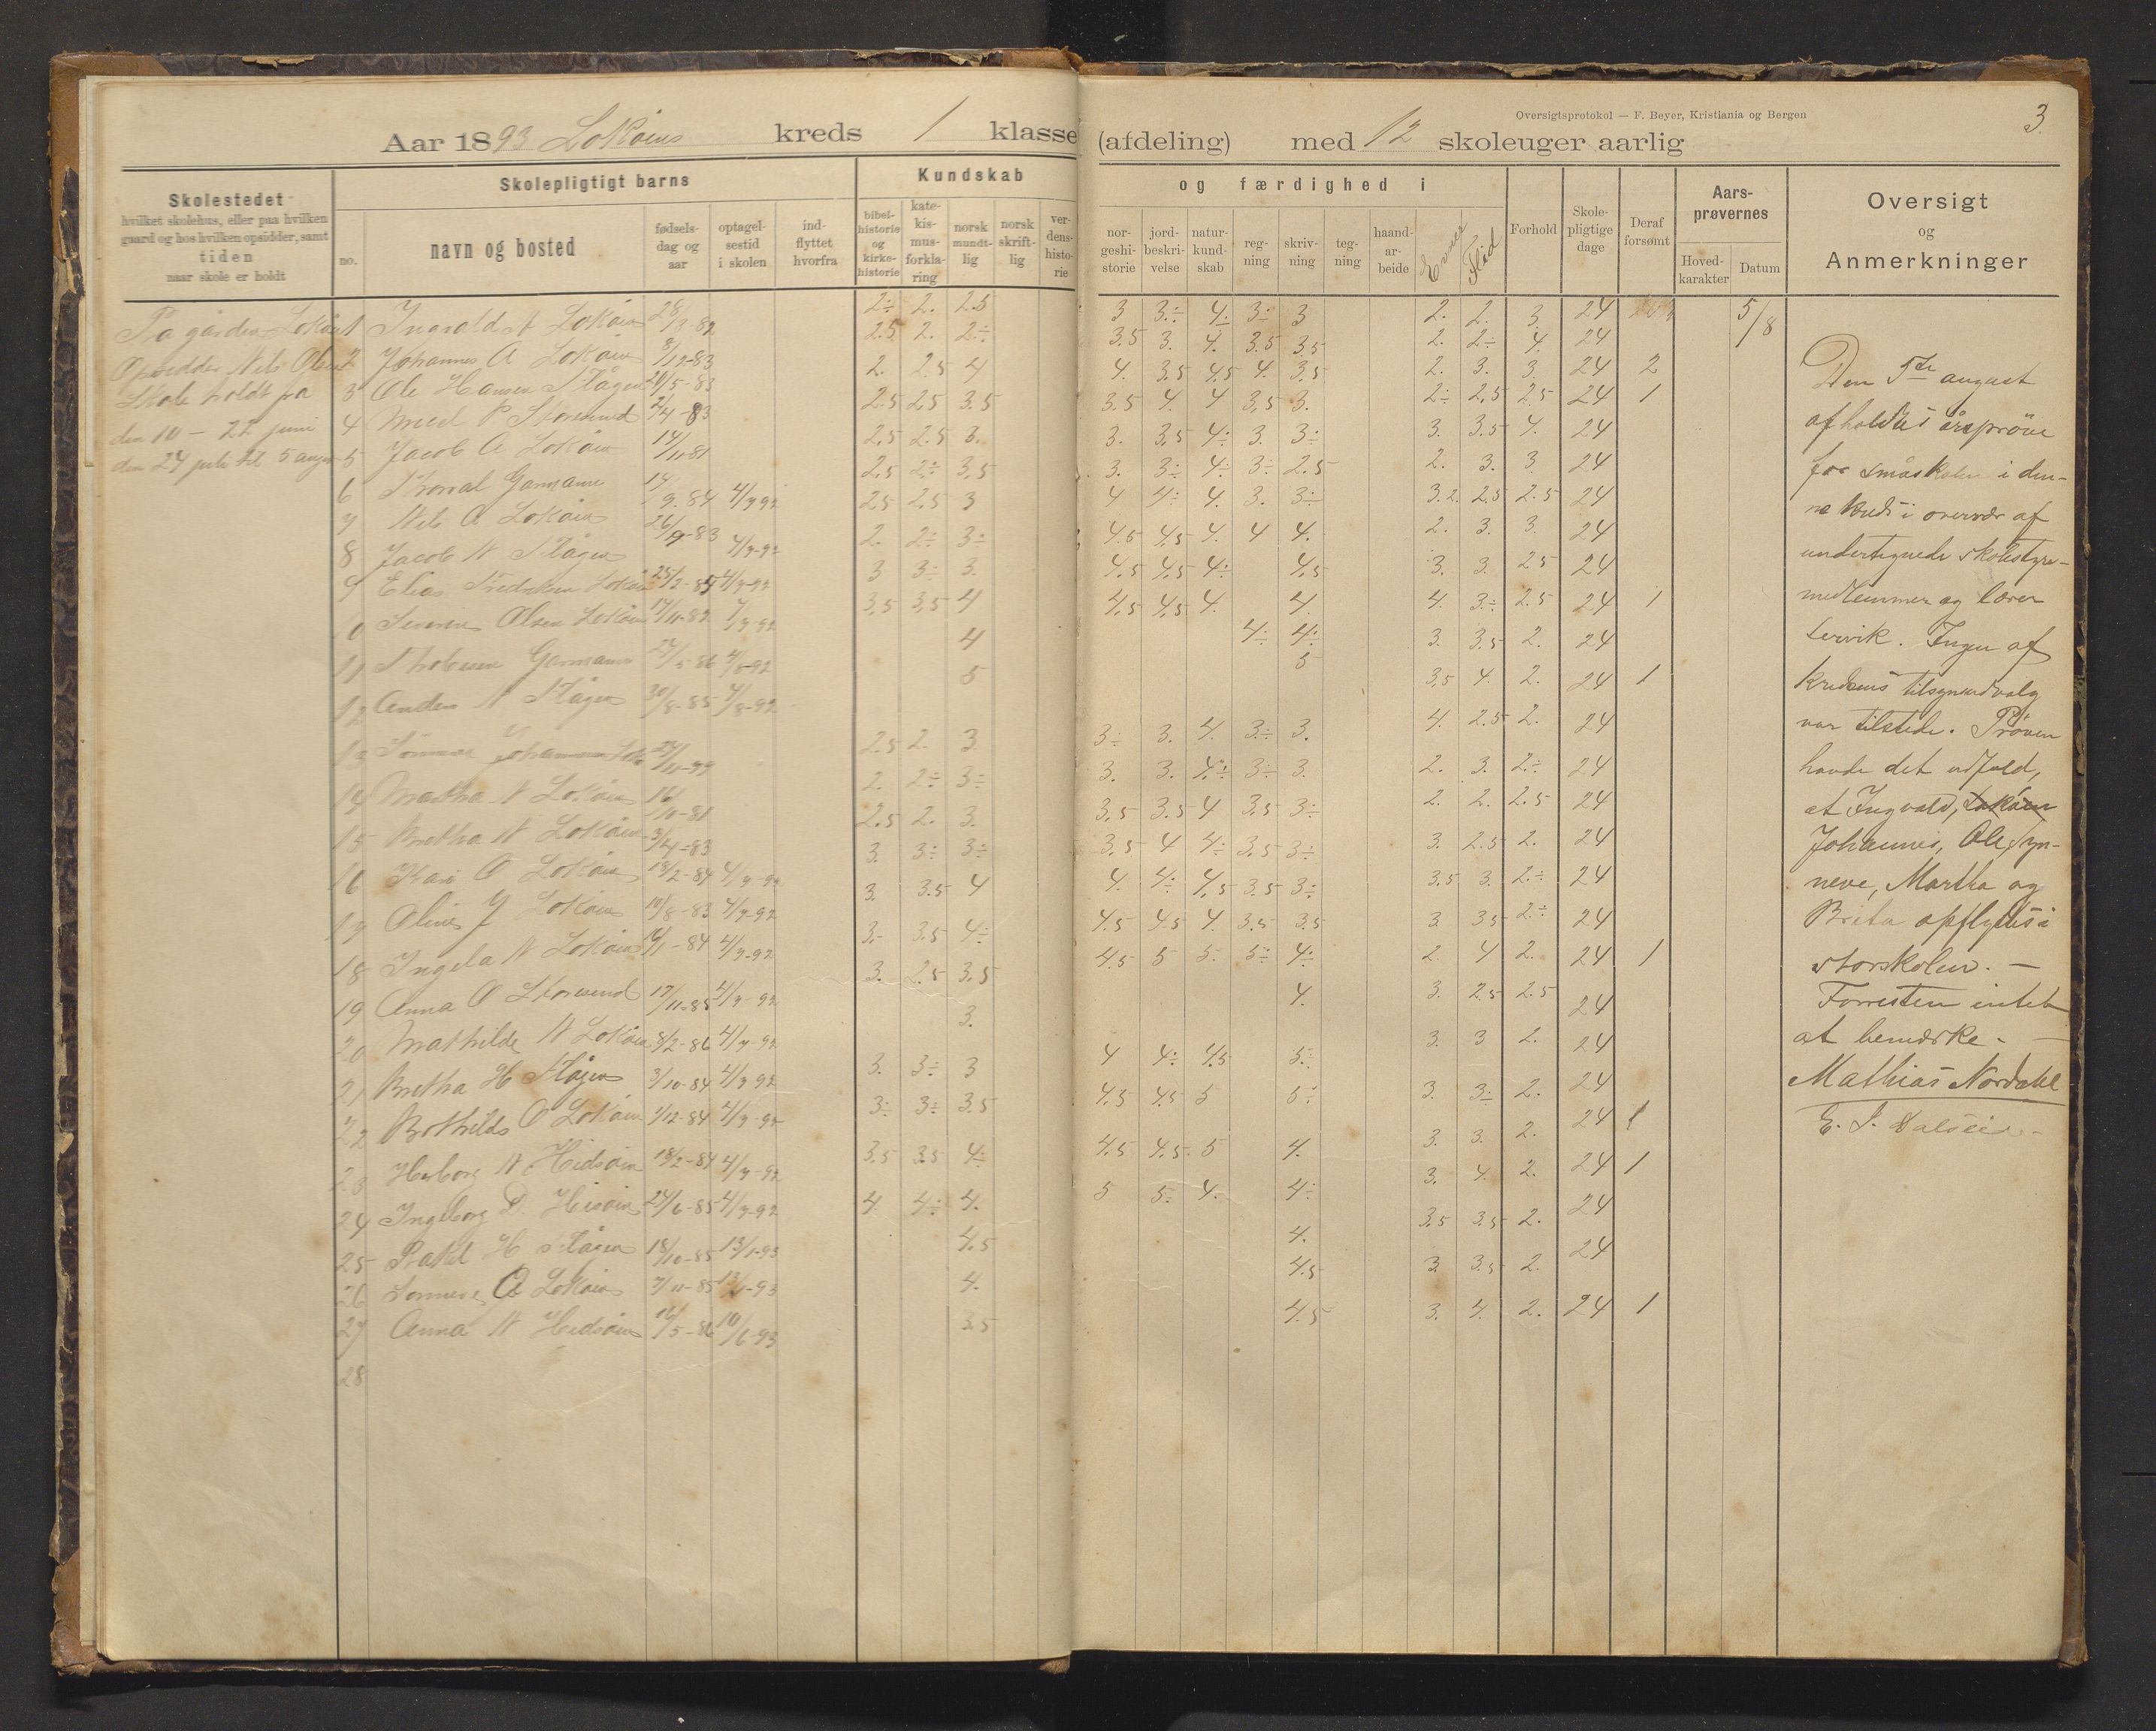 Oversigtsprotokol — F. Beyer, Kristiania og Bergen
3
Aar 1893 Lokøens kreds 1 klasse (afdeling) med 12 skoleuger aarlig
Skolestedet
hvilket skolehus, eller paa hvilken
gaard og hos hvilken opsidder, samt
tiden
naar skole er holdt
Skolepligtigt barns
no.
navn og bosted
fødsels-
dag og
aar
optagel-
sestid
i skolen
ind-
flyttet
hvorfra
Kundskab og færdighed i
bibel-
historie
og
kirke-
historie
kate-
kis-
mus-
forkla-
ring
norsk
mundt-
lig
norsk
skrift-
lig
ver-
dens-
histo-
rie
nor-
geshi-
storie
jord-
beskri-
velse
natur-
kund-
skab
reg-
ning
skriv-
ning
teg-
ning
haand-
ar-
beide
Evner
Flid
Forhold
Skole-
pligtige
dage
Deraf
forsømt
Aars-
prøvernes
Hoved-
karakter
Datum
Oversigt
og
Anmerkninger
På gården Lokøen
Opsidder Nils Olsen
Skole holdt fra
den 10 – 22 juni
den 24 juli til 5 august
1 Ingvald N Lokøen 28/3-82 2÷ 2. 2.5 3 3÷ 4÷ 3÷ 3 2. 2. 3. 24 5/8
2 Johannes A Lokøen 8/12-83 2.5 2. 2÷ 3.5 3. 4. 3.5 3.5 2. 2÷ 4. 24
3 Ole Hansen Flågen 20/5-83 2. 2.5 4 4. 3.5 4.5 4. 3.5 2. 3. 3. 24 2
4 P 2/4-83 2.5 2.5 3.5 3.5 4. 4 3,5 3. 2÷ 2.5 2.5 24 1
5 Jacob A Lokøen 14/11-81 2.5 2.5 3. 3. 3.5 4÷ 3. 3÷ 3. 3.5 4. 24
6 Garmann 14/9-84 4/7-92 2.5 2÷ 3.5 3. 3÷ 4÷ 3÷ 2.5 2. 3. 3. 24
7 Nils A Lokøen 26/9-83 4/7-92 2.5 2.5 3 4 4÷ 4. 3. 3÷ 3.2. 2.5 2.5 24
8 Jacob N Flågen 2. 2÷ 3÷ 4.5 4.5 4. 4 4. 2. 3. 3. 24
9 Elias Fredriksen Lokøen 25/2-85 4/7-92 3 3÷ 3. 4.5 4.5 4÷ 4.5 3. 3. 2.5 24
10 Severin Olsen Lokøen 14/11-82 4/7-92 3.5 3.5 4 4.5 4.5 4. 4. 4. 3÷ 2.5 24 1
11 Garmann 5-86 4/8-92 4 4÷ 4÷ 3. 3.5 2. 24
12 Anders N Flågen 30/8-85 4/8-92 5 5 3,5 4. 2. 24 1
13 4. 2.5 2. 24
2.5 2. 3 3÷ 3. 4. 3÷ 3.
14 Martha N Lokøen 16/10-81 2. 2÷ 3÷ 3. 3. 4÷ 3÷ 3. 2. 3. 2÷ 24
15 Bertha N Lokøen 3/4-83 2.5 2. 3. 3.5 3.5 4 3.5 3÷ 2. 2. 2.5 24
16 Kari O Lokøen 18/2-84 4/7-92 3. 3÷ 3÷ 3.5 4 4÷ 3.5 3÷ 3. 2.5 2. 24
17 Oline J Lokøen 10/8-83 4/7-92 3. 3.5 4 4. 4÷ 4.5 3.5 3÷ 3.5 3. 2÷ 24
18 Ingela N Lokøen 16/1-84 4/7-92 3÷ 3.5 4÷ 4.5 4.5 4. 3.5 3.5 3 3.5 2÷ 24
19 Anna O 17/11-85 4/7-92 3. 2.5 3.5 4.5 5 5. 5÷ 4÷ 2 4 2. 24 1
20 Mathilde N Lokøen 8/2-86 4/7-92 3. 4. 3. 2.5 2.5 24
21 Bertha H Flågen 3/10-84 4/7-92 3. 3÷ 3 4 4÷ 4.5 5÷ 3. 3 2. 24
22 Bothilde O Lokøen 1/12-84 4/7-92 3÷ 3÷ 3.5 4.5 4.5 5 5÷ 3. 3÷ 2. 24
23 Herborg N Hedsøen 18/2-84 4/7-92 3.5 3.5 4÷ 4.5 4.5 5 4. 3. 3. 2. 24 1
24 Ingeborg D. 24/6-85 4/7-92 4. 4÷ 4. 5 5÷ 4. 4÷ 3. 4. 2. 24 1
25 Rakel H Flågen 18/10-85 13/1-93 4.5 4. 3.5 3.5 2. 24
26 O Lokøen 7/11-85 13/1-93 4. 4.5 3. 3.5 2. 24
27 Anna N Hedsøen 16/5-86 10/6-93 3.5 4.5 3. 4. 2. 24 1
28
Den 5te august
afholdtes årsprøve
for småskolen i den-
ne kreds i overvær af
undertegnede skolestyre-
medlemmer og lærer
Lervik. Ingen af
kredsens tilsynsudvalg
var tilstede. Prøven
havde det udfald,
at Ingvald, Lokøen
Johannes, Ole, Syn-
neve, Martha og
Brita opflyttes i
storskolen. —
Forresten intet
at bemærke. —
Mathias Nordahl
E. J.